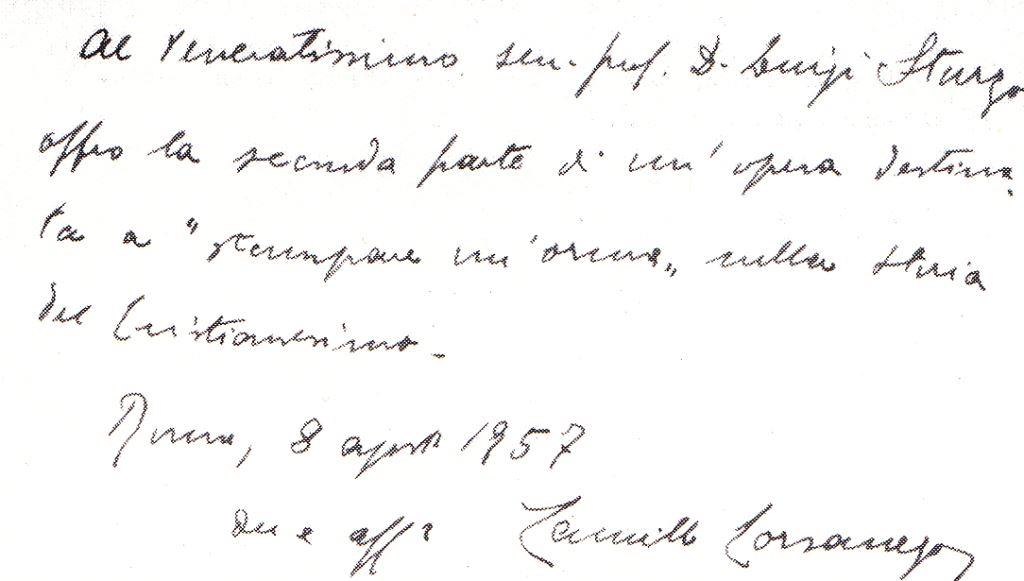 Al Veneratissimo sen. prof. D. Luigi Sturzo
offro la seconda parte di un'opera destina-
ta a "stampare un'orma" nella storia
del Cristianesimo.
Roma, 8 agosto 1957
Camillo Corsanego